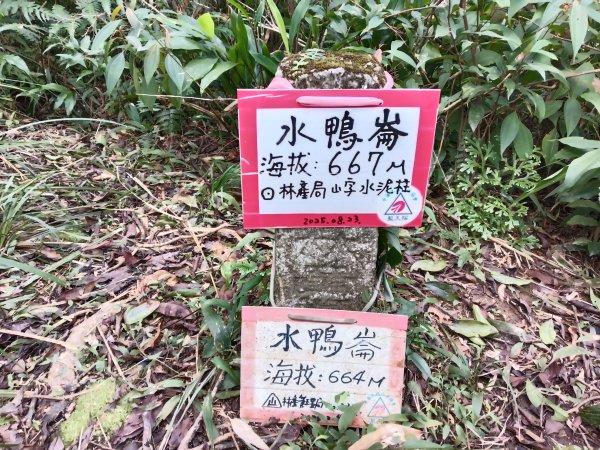 水鴨崙
海拔:667M
林產局山字水泥柱
2025.08.23
藍天隊
水鴨崙
海拔:664M